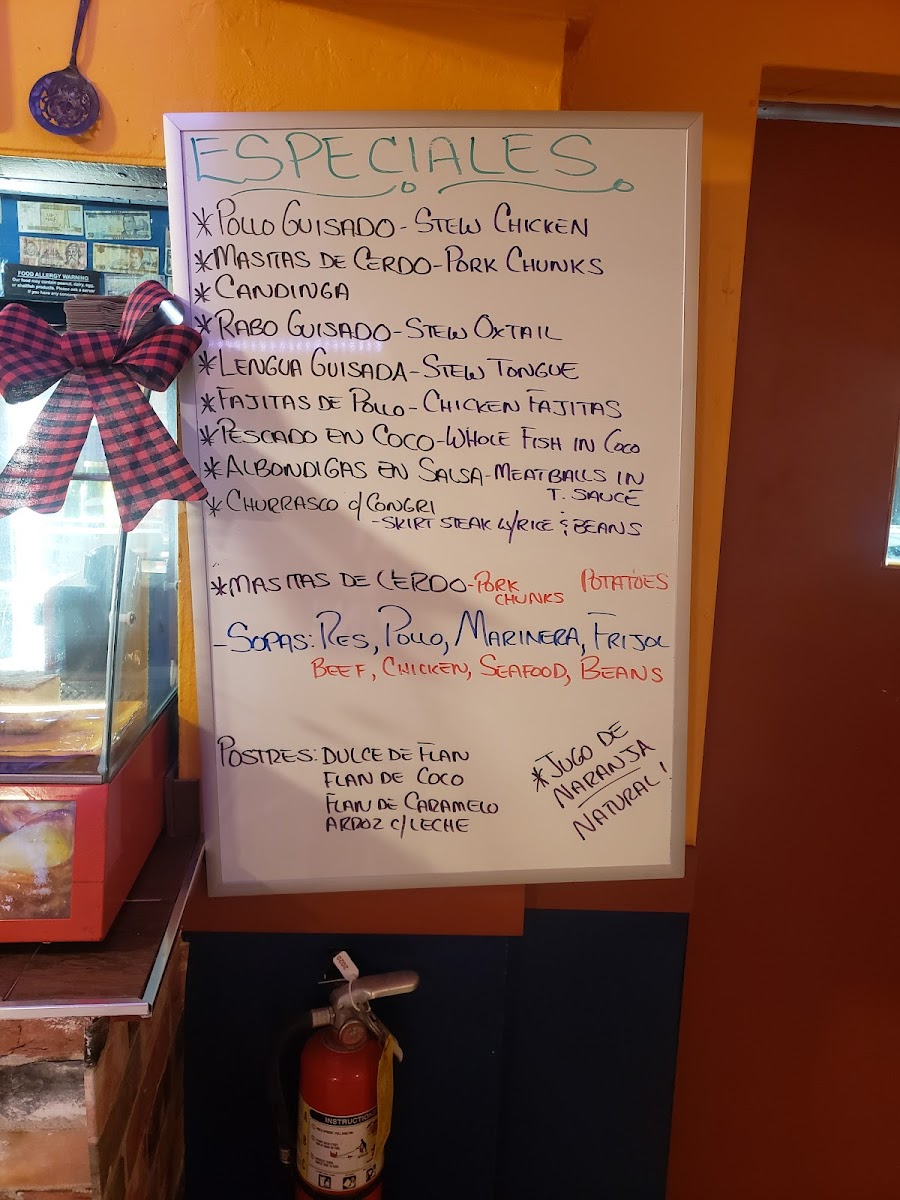 ESPECIALES
*POLLO GUISADO - STEW CHICKEN
*MASITAS DE CERDO-PORK CHUNKS
*CANDINGA
*RABO GUISADO-STEW OXTAIL
*LENGUA GUISADA-STEW TONGUE
*FAJITAS DE POLLO-CHICKEN FAJITAS
*PESCADO EN COCO-WHOLE FISH IN COCO
*ALBONDIGAS EN SALSA-MEATBALLS IN
T. SAUCE
*CHURRASCO c/CONGRI
-SKIRT STEAK W/RICE & BEANS
*MASITAS DE CERDO-PORK CHUNKS POTATOES
-SOPAS: RES, POLLO, MARINERA, FRIJOL
BEEF, CHICKEN, SEAFOOD, BEANS
POSTRES: DULCE DE FLAN
FLAN DE COCO
FLAN DE CARAMELO
ARROZ c/LECHE
*JUGO DE
NARANJA
NATURAL!
FOOD ALLERGY WARNING
Our food may contain peanut, dairy, egg,
or shellfish products. Please ask a server
if you have any concerns
2020
INSTRUCTIONS